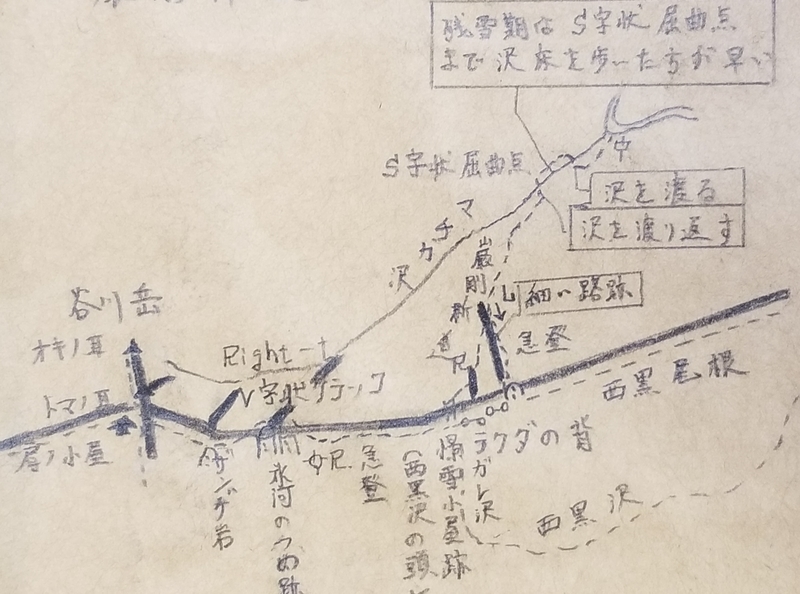 残雪期は S字状 屈曲点
まで 沢床を歩いた方が早い
S字状 屈曲点
沢を渡る
沢を渡り返す
マチガ沢
巌剛新道
細い踏跡
急登
谷川岳
オキノ耳
トマノ耳
肩ノ小屋
Right-t
V字状クラック
西黒尾根
ラクダの背
ガレ沢
惰雪小屋跡
(西黒沢の頭
急登
氷河のつめ跡
ザンゲ岩
西黒沢